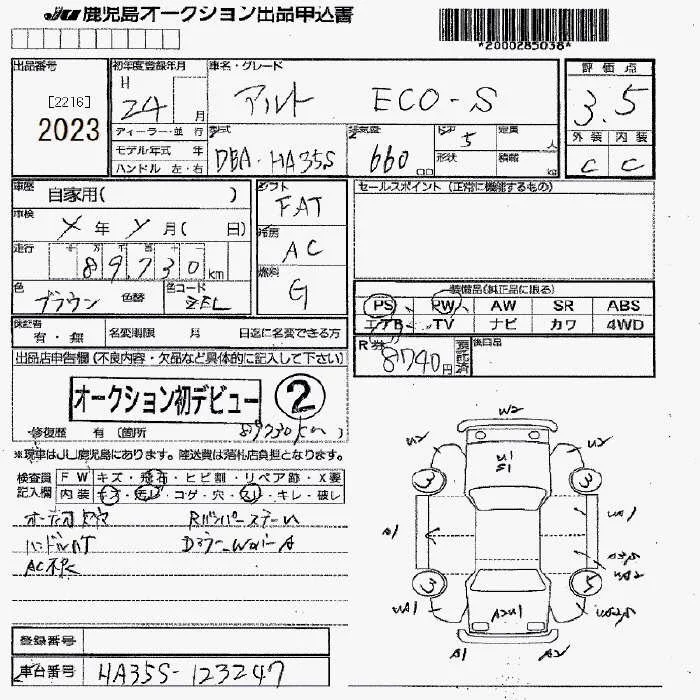 JU 鹿児島オークション出品申込書
*2000285038*
出品番号 初年度登録年月 車名・グレード 評価点
[2216]
2023
H 24 月
アルト ECO-S
3.5
ディーラー・並行 型式 排気量 ドア 定員 人
外装 内装
モデル年式 年
DBA-HA35S 660 cc 5
形状 積載 kg
ハンドル 左・右
C C
車歴 自家用( ) シフト FAT
セールスポイント (正常に機能するもの)
車検 年 月( 日) 冷房 AC
走行 89,730 km 燃料 G
色 ブラウン 色替 色コード ZEL
装備品(純正品に限る)
PS PW AW SR ABS
エアB TV ナビ カワ 4WD
保証書 有・無 名変期限 月 日迄に名変できる方
R券 8740円 預託済 後日品
出品店申告欄 (不良内容・欠品など具体的に記入して下さい)
オークション初デビュー ②
89730km
修復歴 有 (箇所
※現車はJU鹿児島にあります。陸送費は落札店負担となります。
検査員記入欄 FW キズ・飛石・ヒビ割・リペア跡・X要
内装 キズ・汚レ・コゲ・穴・スレ・キレ・破レ
オーディオ欠
AC不良
W2
W2 W2
U1
S1
3 3
A1
3 5
UA1
UA2
A1 A2
登録番号
車台番号 HA35S-123247